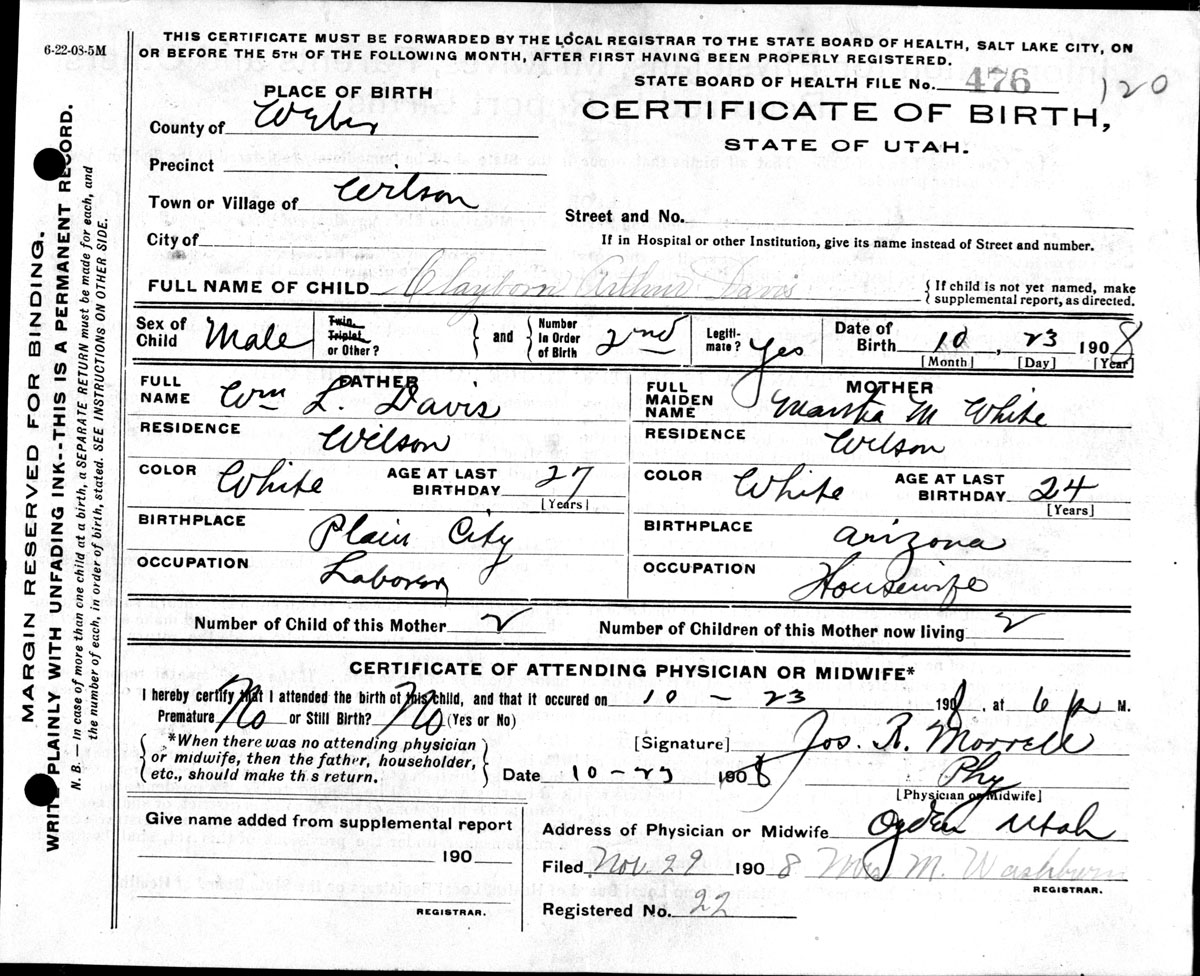 6-22-08-5M
THIS CERTIFICATE MUST BE FORWARDED BY THE LOCAL REGISTRAR TO THE STATE BOARD OF HEALTH, SALT LAKE CITY, ON
OR BEFORE THE 5TH OF THE FOLLOWING MONTH, AFTER FIRST HAVING BEEN PROPERLY REGISTERED.
STATE BOARD OF HEALTH FILE No. 476 120
PLACE OF BIRTH
CERTIFICATE OF BIRTH,
STATE OF UTAH.
County of Weber
Precinct
Town or Village of Wilson
Street and No.
City of
If in Hospital or other Institution, give its name instead of Street and number.
FULL NAME OF CHILD Clayborn Arthur Davis { If child is not yet named, make
supplemental report, as directed.
Sex of Child Male Twin, Triplet, or Other? and Number in Order of Birth 2nd Legiti-mate? Yes Date of Birth 10, 23 1908
[Month] [Day] [Year]
FATHER
FULL NAME Wm L. Davis
RESIDENCE Wilson
COLOR White AGE AT LAST BIRTHDAY 27
[Years]
BIRTHPLACE Plain City
OCCUPATION Laborer
MOTHER
FULL MAIDEN NAME Martha M White
RESIDENCE Wilson
COLOR White AGE AT LAST BIRTHDAY 24
[Years]
BIRTHPLACE Arizona
OCCUPATION Housewife
Number of Child of this Mother 2 Number of Children of this Mother now living 2
CERTIFICATE OF ATTENDING PHYSICIAN OR MIDWIFE*
I hereby certify that I attended the birth of this child, and that it occured on 10 - 23 1908, at 6 p M.
Premature No or Still Birth? No (Yes or No)
*When there was no attending physician
or midwife, then the father, householder,
etc., should make th s return.
[Signature] Jos. R. Morrell
Date 10-23 1908 Phy
[Physician or Midwife]
Give name added from supplemental report
190
REGISTRAR.
Address of Physician or Midwife Ogden Utah
Filed Nov. 29 1908 Mrs M. Washburn
REGISTRAR.
Registered No. 22
MARGIN RESERVED FOR BINDING.
WRITE PLAINLY WITH UNFADING INK--THIS IS A PERMANENT RECORD.
N. B. — In case of more than one child at a birth, a SEPARATE RETURN must be made for each, and
the number of each, in order of birth, stated. SEE INSTRUCTIONS ON OTHER SIDE.